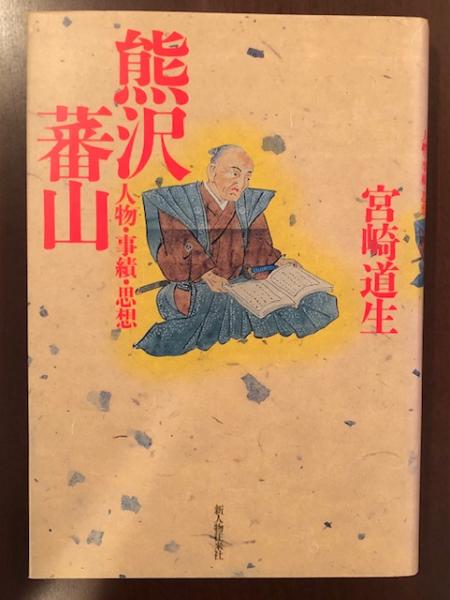 熊沢
蕃山
人物・事績・思想
宮崎道生
新人物往来社